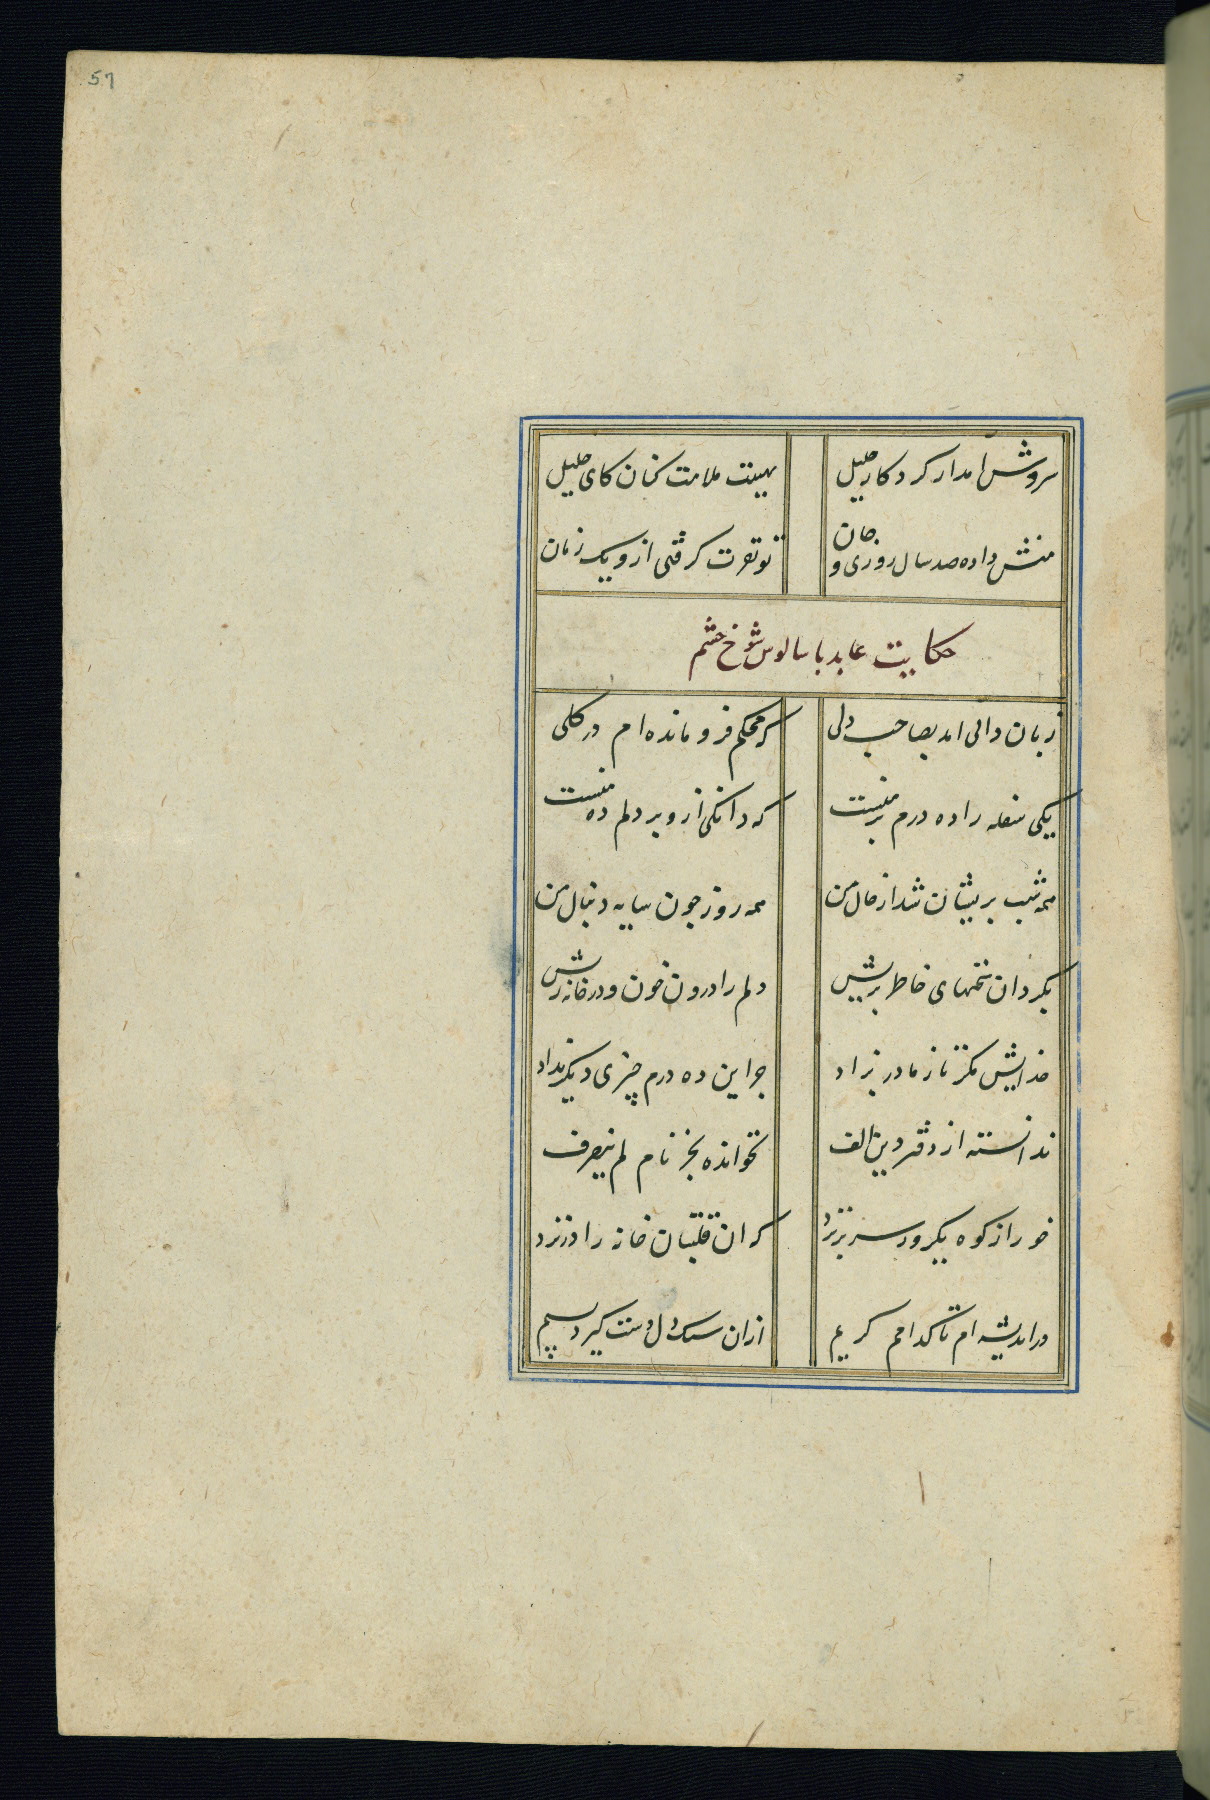 57
سروش امد از کردکار جلیل بهیبت ملامت کنان کای خلیل
منش داده صد سال روزی و جان تو نفرت گرفتی ازو یک زمان
حکایت عابد با سالوس شوخ چشم
زبان دانی امد بصاحب دلی که محکم فرو مانده ام در کلی
یکی سفله را ده درم بر منست که دانکی ازو بر دلم ده منست
همه شب پریشان شد از حال من همه روز چون سایه دنبال من
بکرد از سخنهای خاطر پریش دلم را درون خون و در خانه ریش
خدایش مکر تا ز مادر بزاد جز این ده درم چیزی دیکر نداد
ندانسته از دفتر دین الف نخوانده بجز نام لم ینصرف
خور از کوه یکروز سر بر نزد که ان قلتبان خانه را در نزد
در اندیشه ام تا کدامم کریم ازان سنک دل دست کیرد بسیم